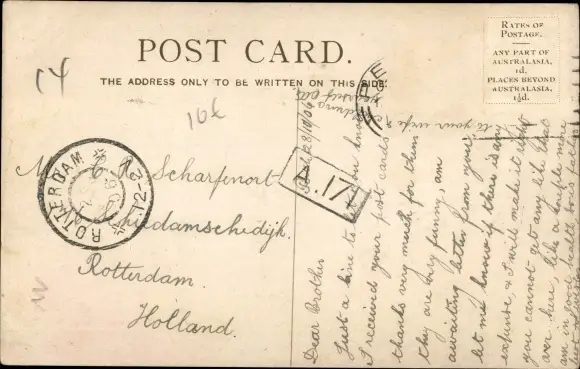 POST CARD.
THE ADDRESS ONLY TO BE WRITTEN ON THIS SIDE.
RATES OF
POSTAGE.
ANY PART OF
AUSTRALASIA,
1d.
PLACES BEYOND
AUSTRALASIA,
1½d.
14
106
ROTTERDAM
A.171
Scharfenort
Rotterdam.
Holland.
28/10/06
Dear Brother
Just a line to let you know
I received your post cards
thanks very much for them
they are very funny, am
awaiting letter from you,
let me know if there is any
expense, & I will make it
you cannot get any like that
over here, like a couple more
am in good health
to your wife &